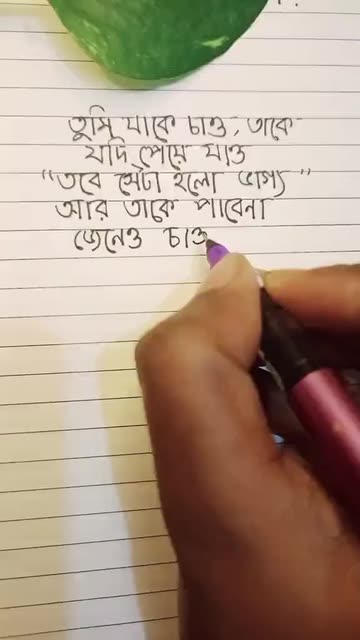 তুমি যাকে চাও, তাকে
যদি পেয়ে যাও
"তবে সেটা হলো ভাগ্য"
আর তাকে পাবেনা
জেনেও চাও